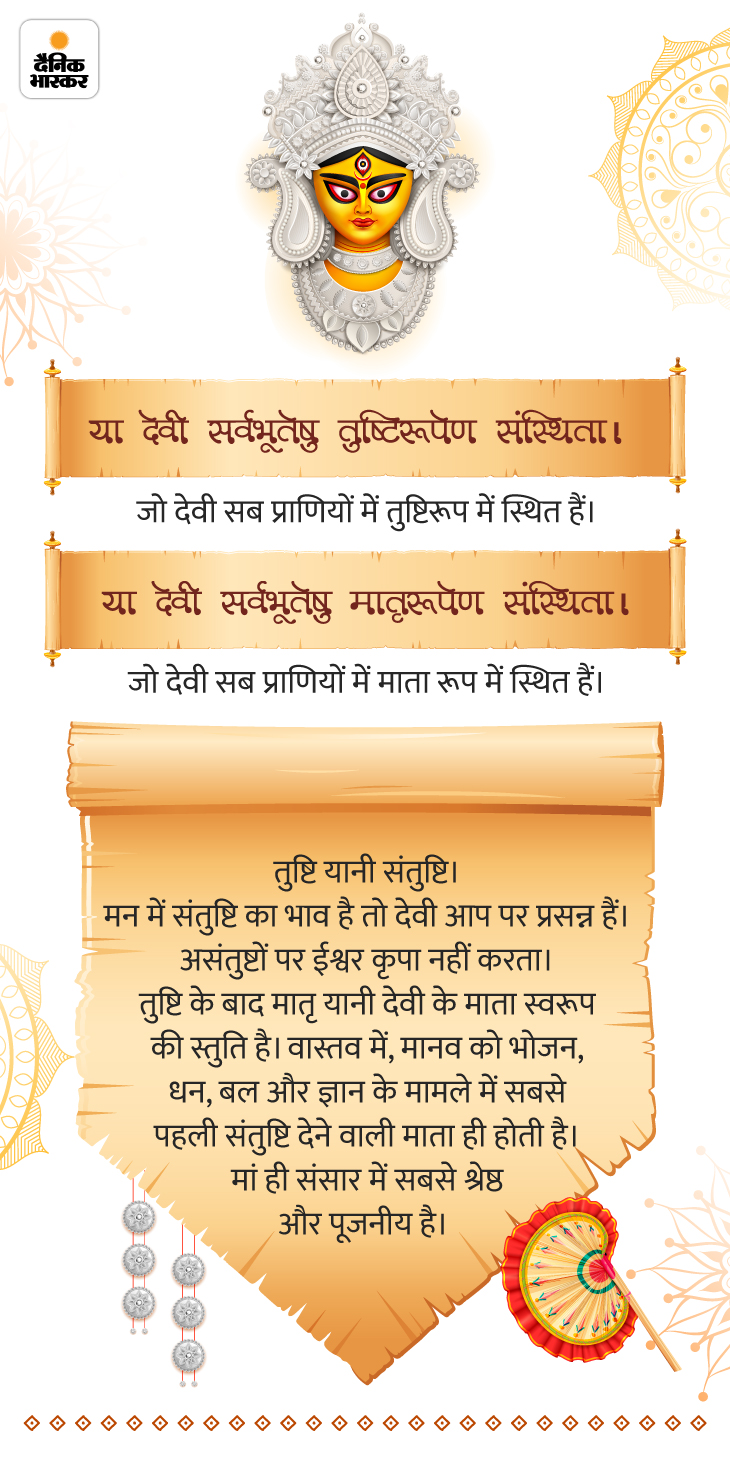 दैनिक
भास्कर
या देवी सर्वभूतेषु तुष्टिरूपेण संस्थिता।
जो देवी सब प्राणियों में तुष्टिरूप में स्थित हैं।
या देवी सर्वभूतेषु मातृरूपेण संस्थिता।
जो देवी सब प्राणियों में माता रूप में स्थित हैं।
तुष्टि यानी संतुष्टि।
मन में संतुष्टि का भाव है तो देवी आप पर प्रसन्न हैं।
असंतुष्टों पर ईश्वर कृपा नहीं करता।
तुष्टि के बाद मातृ यानी देवी के माता स्वरूप
की स्तुति है। वास्तव में, मानव को भोजन,
धन, बल और ज्ञान के मामले में सबसे
पहली संतुष्टि देने वाली माता ही होती है।
मां ही संसार में सबसे श्रेष्ठ
और पूजनीय है।